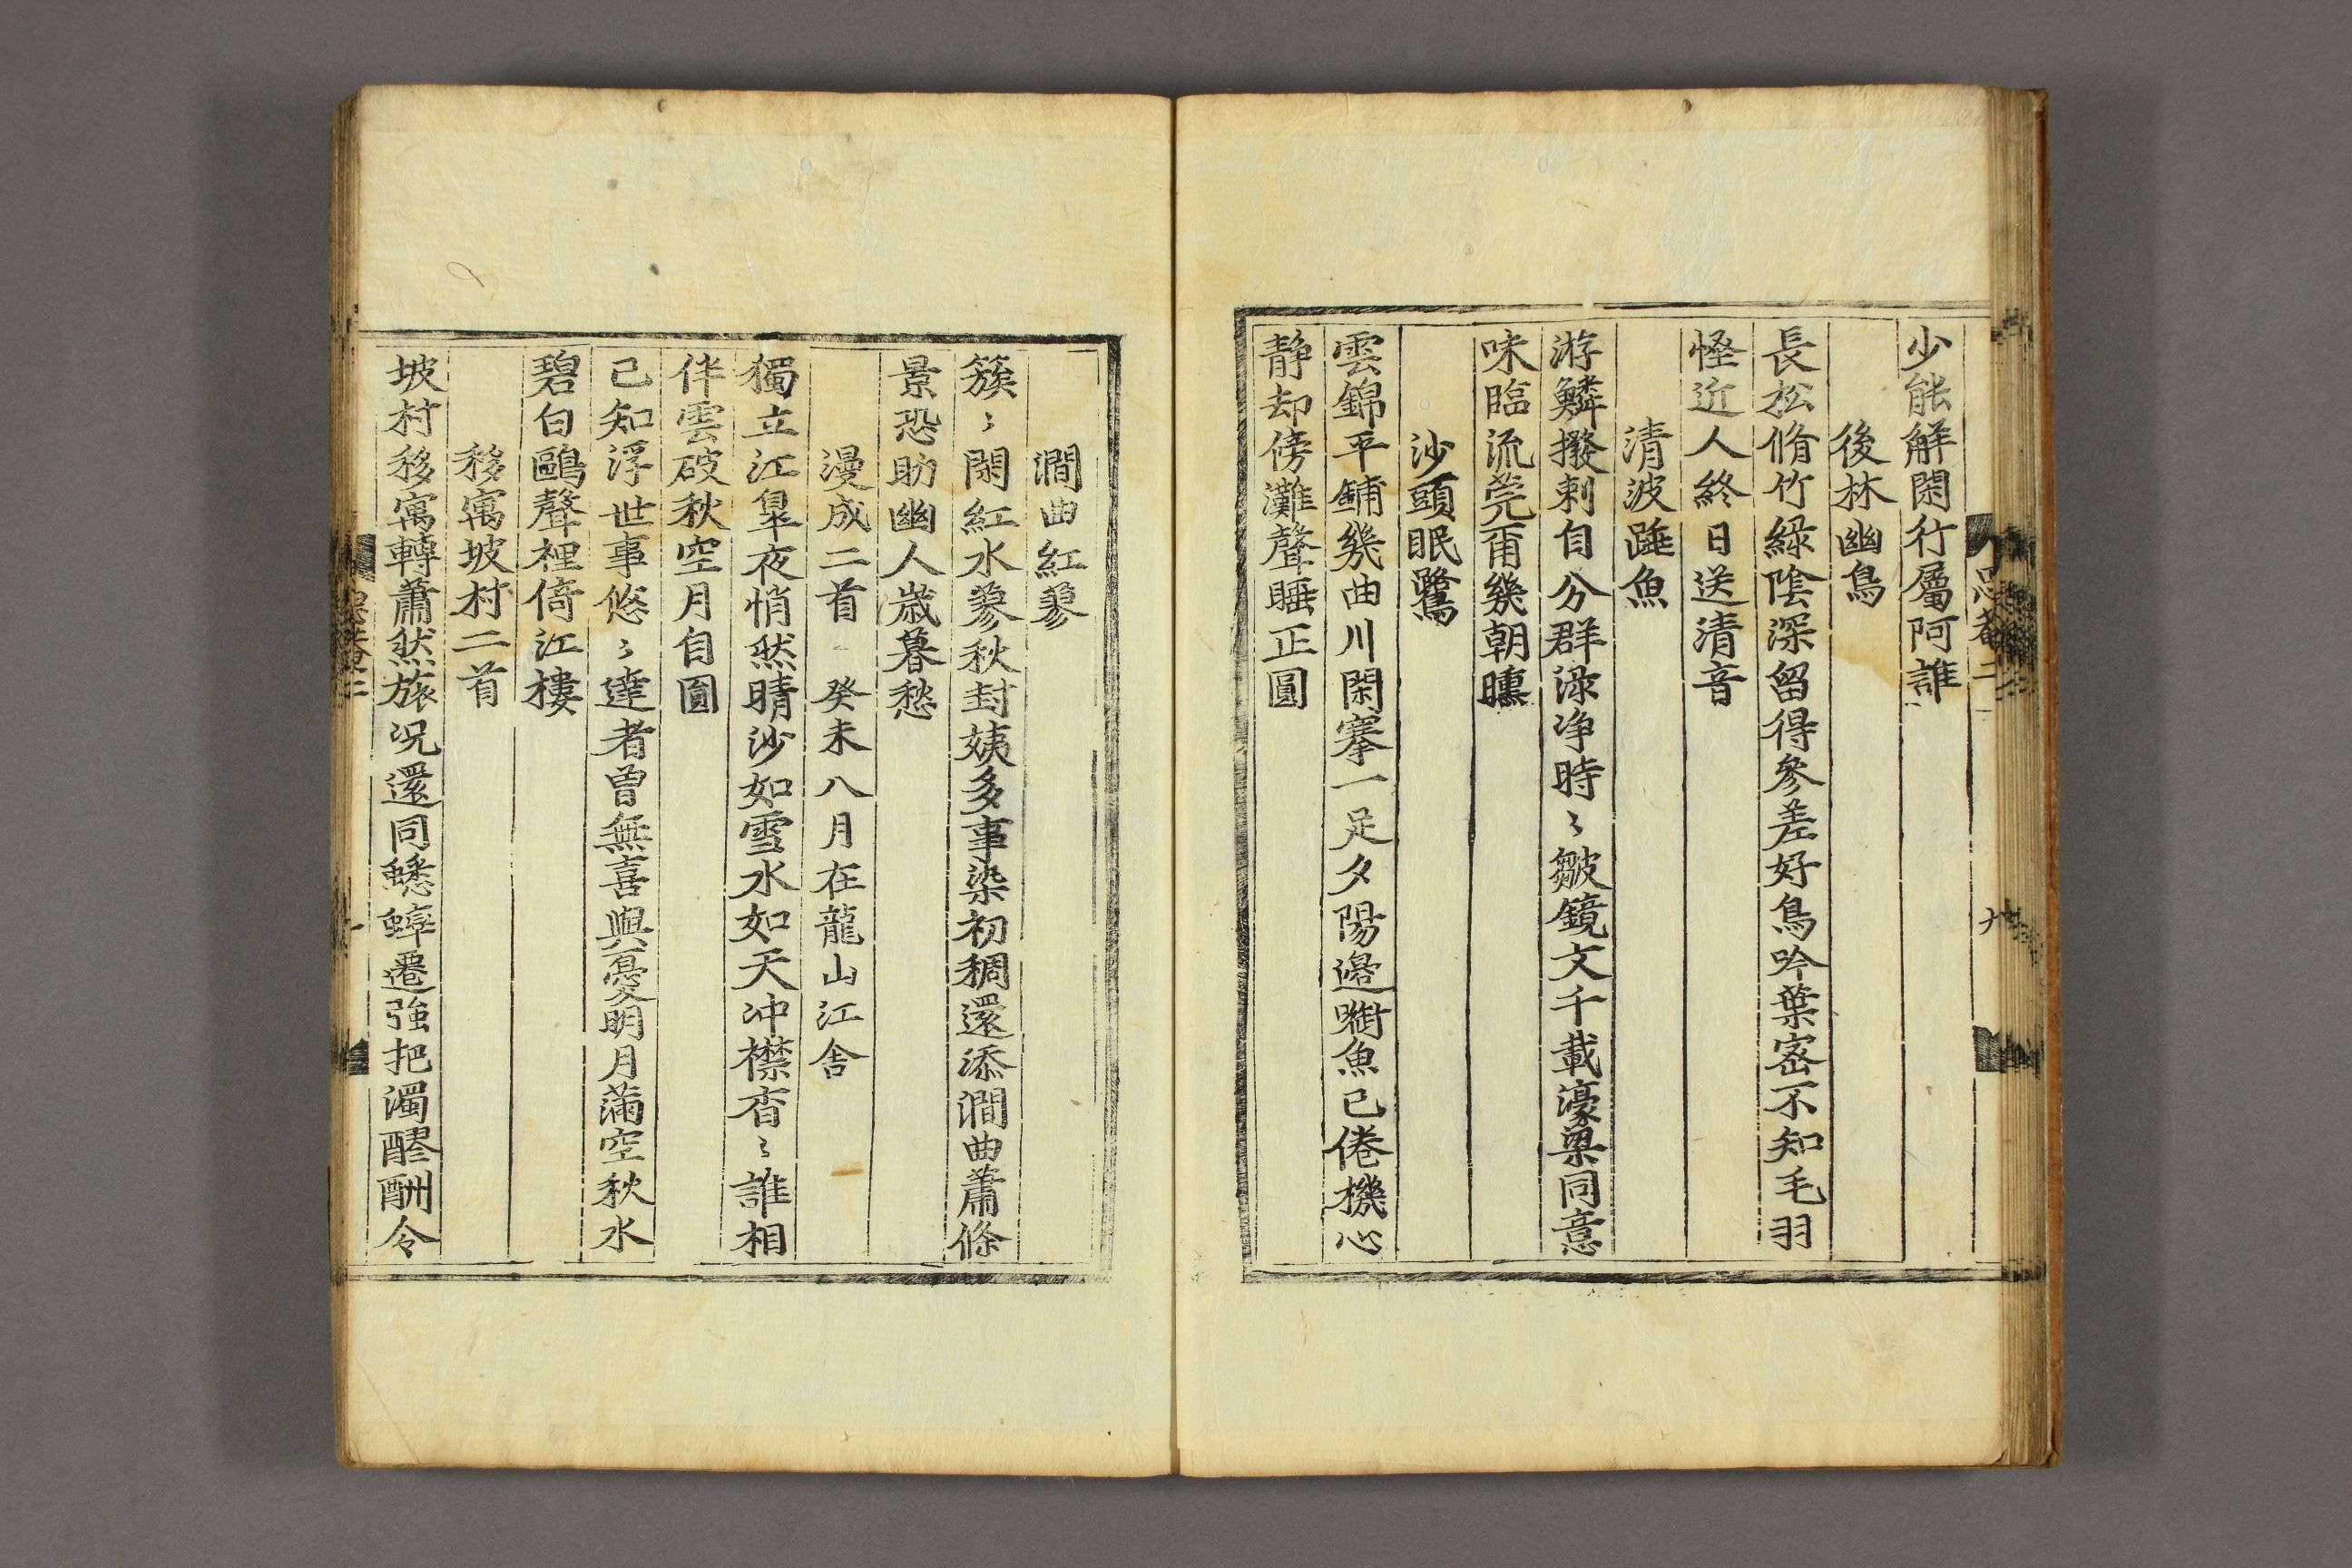 少能解閑行屬阿誰
後林幽鳥
長松脩竹綠陰深留得參差好鳥吟葉密不知毛羽
怪近人終日送清音
清波踵魚
游鱗撥剌自分群淥净時〻皺鏡文千載濠梁同意
味臨流莞甭幾朝曛
沙頭眠鷺
雲錦平鋪幾曲川閑搴一足夕陽邊㗸魚已倦機心
静却傍灘聲睡正圓
澗曲紅蓼
簇〻閑紅水蓼秋封姨多事染初稠還添澗曲蕭條
景恐助幽人歲暮愁
漫成二首 癸未八月在龍山江舍
獨立江臯夜悄然晴沙如雪水如天冲襟杳〻誰相
伴雲破秋空月自圓
已知浮世事悠〻達者曾無喜與憂明月滿空秋水
碧白鷗聲裡倚江樓
移寓坡村二首
坡村移寓轉蕭然旅况還同蟋蟀遷強把濁醪酬令